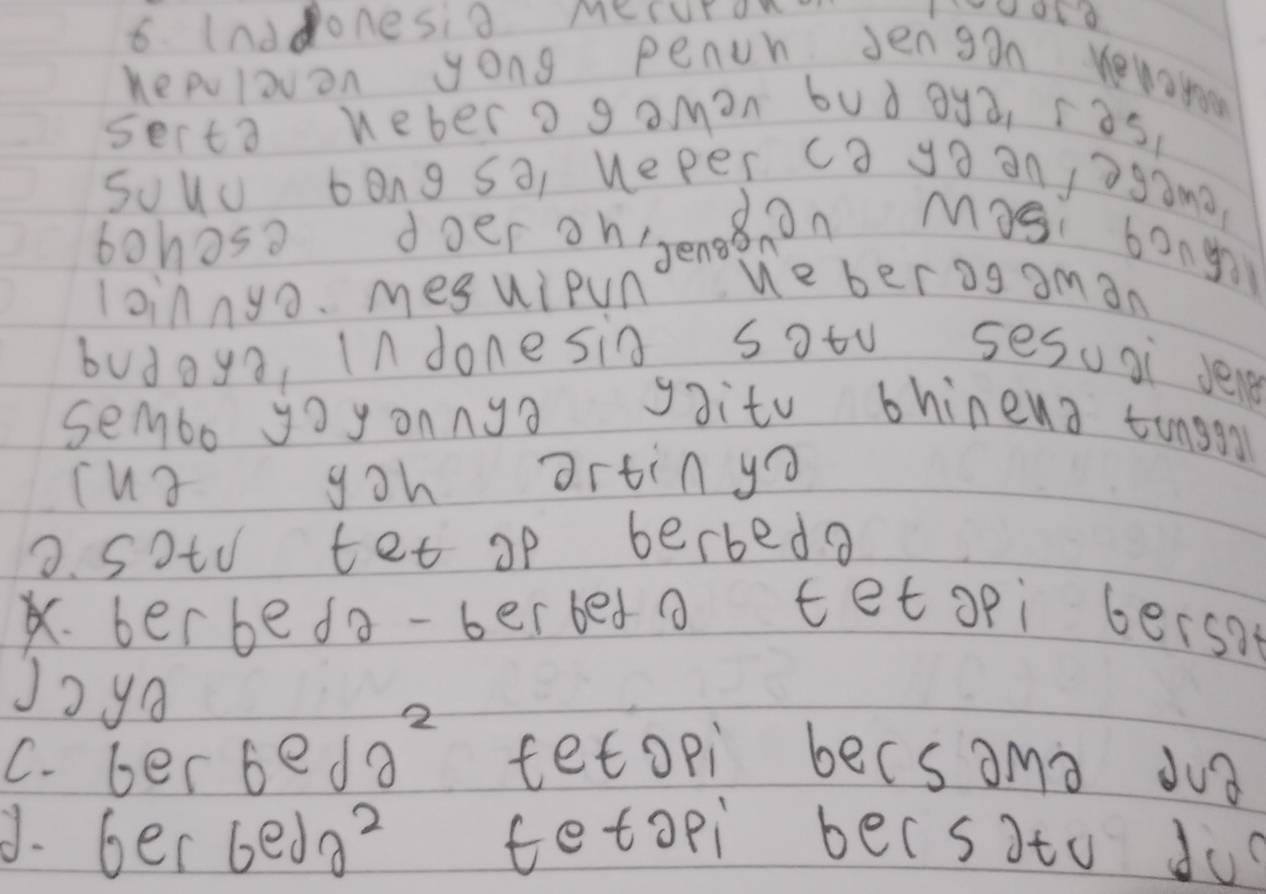 6. Inddonesia
kepulauan yang penuh dengan
serta keberagaman budaya, ras,
suku bangsa, kepercayaan, agama,
bahasa daerah, dan masi
lainnya. meskipun dengan keberagaman
budaya, Indonesia satu sesuai
semboyayannya yaitu bhineka tunggal
ika yah artinya
a. satu tetap berbeda
berbeda-berbeda tetapi
Jaya
c. berbeda² tetapi bersama dua
d. berbeda² tetapi bersatu